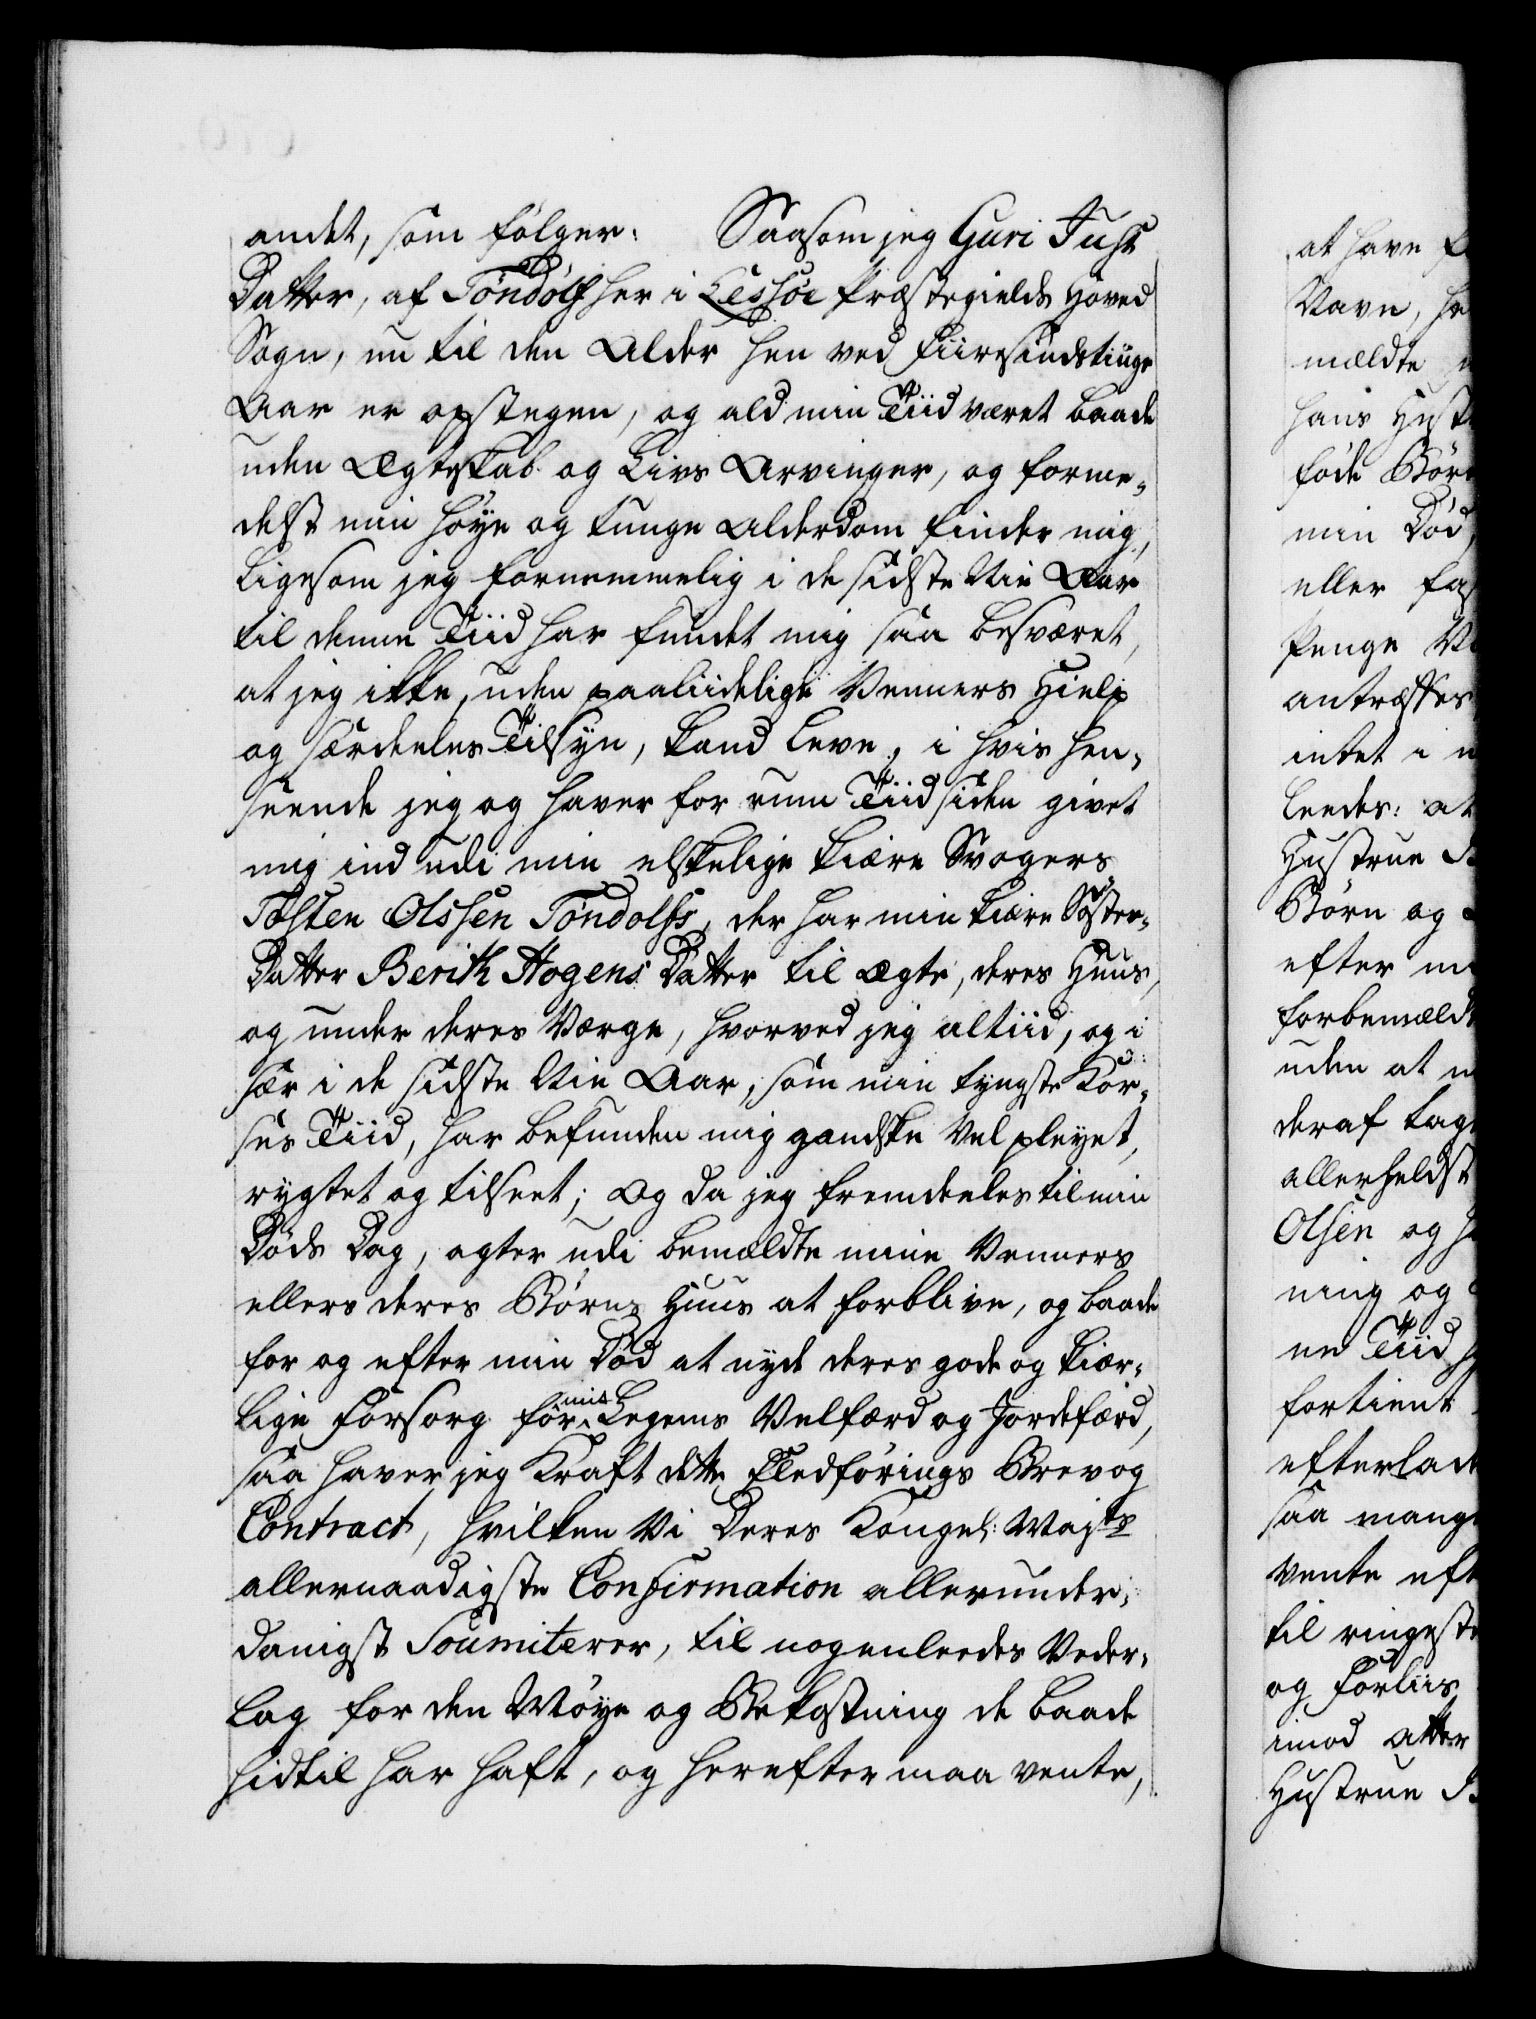 andet, som følger: Saasom jeg Guri Juhl
Datter, af Töndólf her i Lessöe Præstegields Hoved
Sogn, nu til den Alder hen ved Fiiresindstiuge
Aar er opstegen, og ald min Tiid været baade
uden Ægteskab og Livs Arvinger, og forme-
delst min høye og tunge Alderdom finder mig,
ligesom jeg fornemmelig i de sidste Nie Aar
til denne Tiid har fundet mig saa besværet,
at jeg ikke, uden paaliidelige Venners Hielp
og særdeeles Tilsyn, kand leve, i hvis hen-
seende jeg og haver for rum Tiid siden givet
mig ind udi min elskelige kiære Svogers
Tosten Olssen Töndolfs, der har min kiære Søster-
Datter Berith Hogens Datter til Ægte, deres Huus,
og under deres Værge, hvorved jeg altiid, og i
sær i de sidste Nie Aar, som min tyngste Kor-
ses Tiid, har befunden mig gandske vel pleyet,
rygtet og tilseet; Og da jeg fremdeeles til min
Døds Dag, agter udi bemældte mine Venners
ellers deres Børns Huus at forblive, og baade
for og efter min Død at nyde deres gode og kiær-
lige Forsorg for mit Legems Velfærd og Jordefærd,
saa haver jeg Kraft dette Fledförings Brev og
Contract, hvilken Vi Deres Kongel: Majts
allernaadigste Confirmation allerunder-
danigst Soumiterer, til nogenleedes Veder-
lag for den Möye og Bekostning de baade
hidtil har haft, og herefter maa vente,
at have
Navn,
mældte
hans
føde Børn
min Død,
eller
Penge
antræffes
intet i
leedes: at
Hustrue
Børn og
efter
forbemældte
uden at
deraf
allerheldst
Olsen og
ning og
ne Tiid
fortient
efterlade
saa mange
vente
til ringeste
og Forliis
imod atter
Hustrue